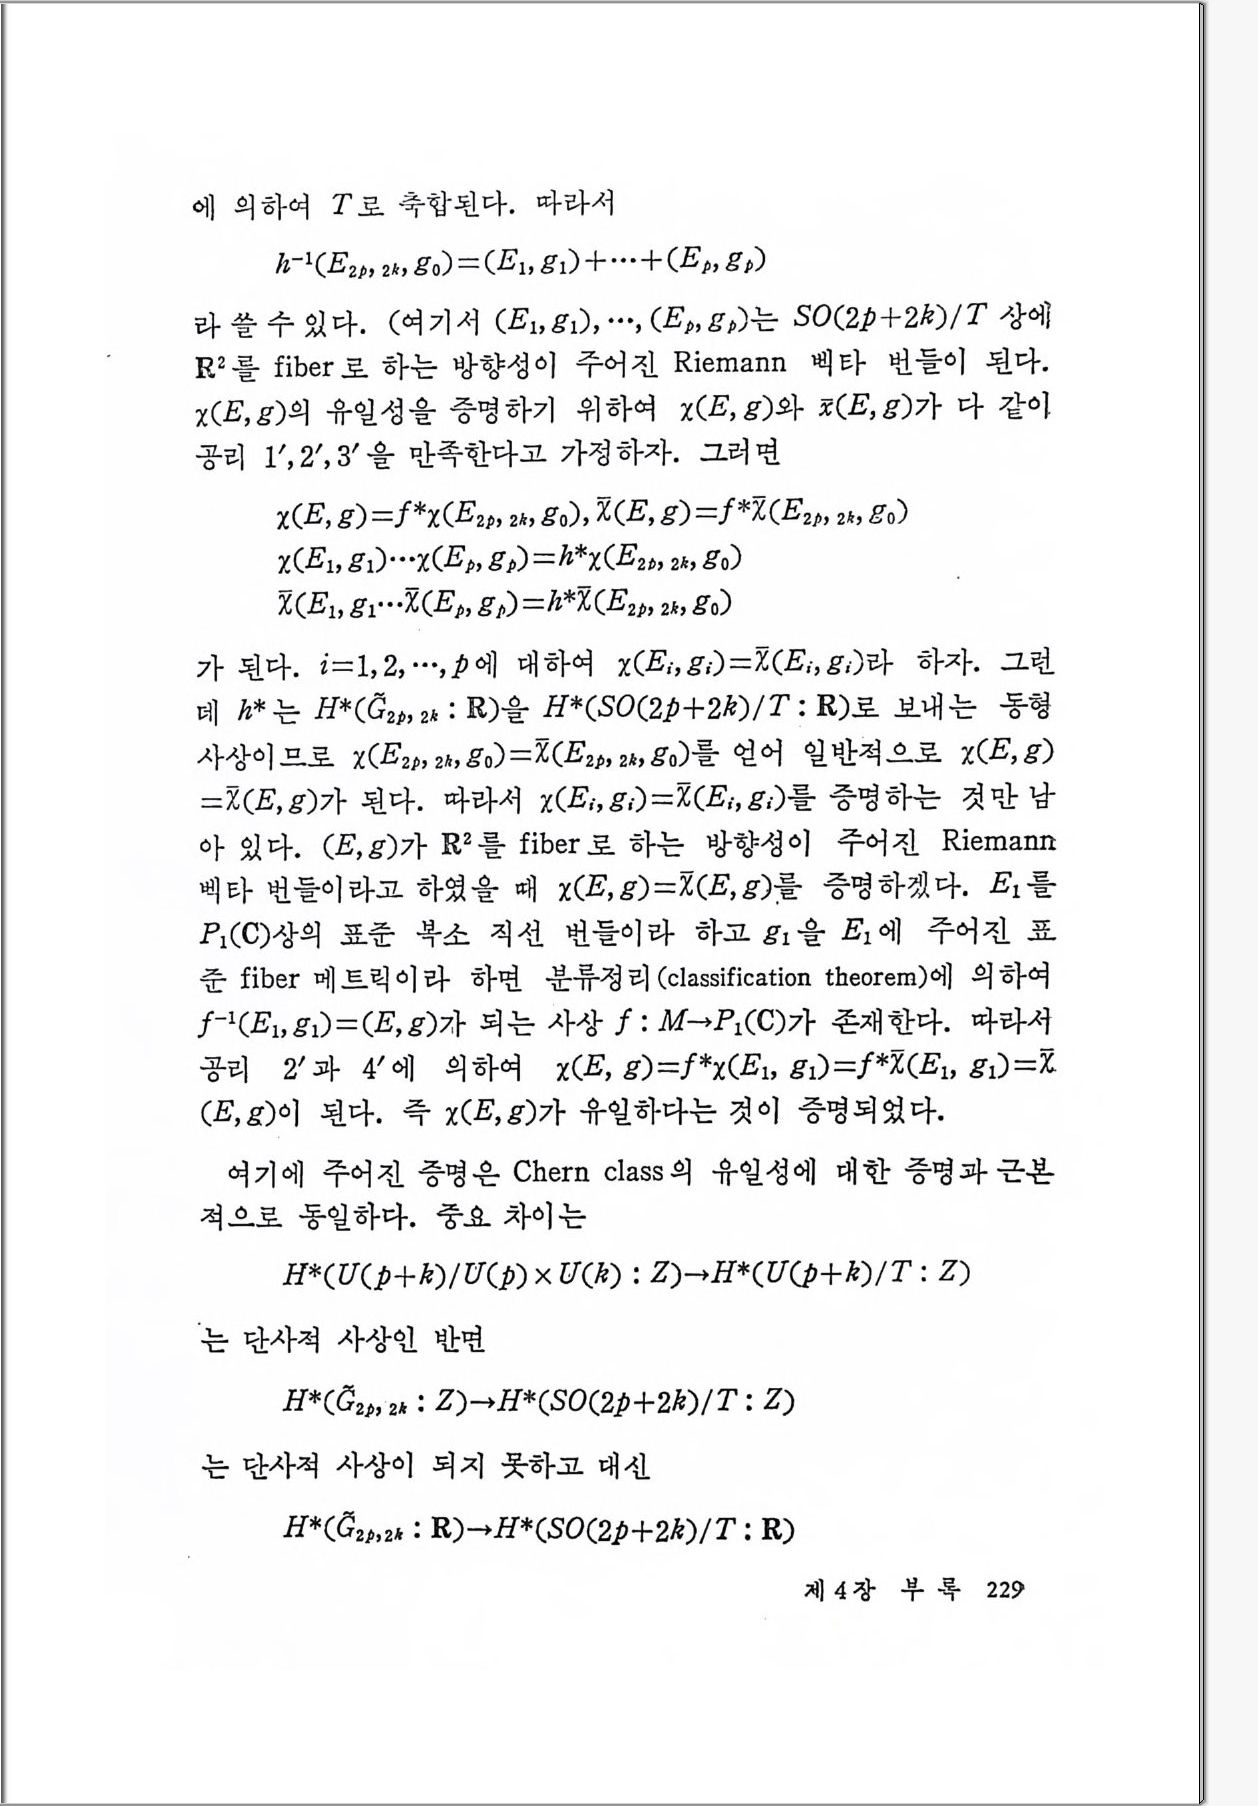 에 의하여 T로 축합된다. 따라서
h⁻¹(E₂ₚ, ₂ₖ, g₀)=(E₁, g₁)+···+(Eₚ, gₚ)
라 쓸 수 있다. (여기서 (E₁, g₁), ···, (Eₚ, gₚ)는 SO(2p+2k)/T 상에
R²를 fiber로 하는 방향성이 주어진 Riemann 벡타 번들이 된다.
χ(E, g)의 유일성을 증명하기 위하여 χ(E, g)와 x̄(E, g)가 다 같이
공리 1′, 2′, 3′을 만족한다고 가정하자. 그러면
χ(E, g)=f*χ(E₂ₚ, ₂ₖ, g₀), χ̄(E, g)=f*χ̄(E₂ₚ, ₂ₖ, g₀)
χ(E₁, g₁)···χ(Eₚ, gₚ)=h*χ(E₂ₚ, ₂ₖ, g₀)
χ̄(E₁, g₁···χ̄(Eₚ, gₚ)=h*χ̄(E₂ₚ, ₂ₖ, g₀)
가 된다. i=1, 2, ···, p에 대하여 χ(Eᵢ, gᵢ)=χ̄(Eᵢ, gᵢ)라 하자. 그런
데 h*는 H*(G̃₂ₚ, ₂ₖ : R)을 H*(SO(2p+2k)/T : R)로 보내는 동형
사상이므로 χ(E₂ₚ, ₂ₖ, g₀)=χ̄(E₂ₚ, ₂ₖ, g₀)를 얻어 일반적으로 χ(E, g)
=χ̄(E, g)가 된다. 따라서 χ(Eᵢ, gᵢ)=χ̄(Eᵢ, gᵢ)를 증명하는 것만 남
아 있다. (E, g)가 R²를 fiber로 하는 방향성이 주어진 Riemann
벡타 번들이라고 하였을 때 χ(E, g)=χ̄(E, g)를 증명하겠다. E₁를
P₁(C)상의 표준 복소 직선 번들이라 하고 g₁을 E₁에 주어진 표
준 fiber 메트릭이라 하면 분류정리(classification theorem)에 의하여
f⁻¹(E₁, g₁)=(E, g)가 되는 사상 f : M→P₁(C)가 존재한다. 따라서
공리 2′과 4′에 의하여 χ(E, g)=f*χ(E₁, g₁)=f*χ̄(E₁, g₁)=χ̄
(E, g)이 된다. 즉 χ(E, g)가 유일하다는 것이 증명되었다.
여기에 주어진 증명은 Chern class의 유일성에 대한 증명과 근본
적으로 동일하다. 중요 차이는
H*(U(p+k)/U(p)×U(k) : Z)→H*(U(p+k)/T : Z)
는 단사적 사상인 반면
H*(G̃₂ₚ, ₂ₖ : Z)→H*(SO(2p+2k)/T : Z)
는 단사적 사상이 되지 못하고 대신
H*(G̃₂ₚ,₂ₖ : R)→H*(SO(2p+2k)/T : R)
제 4 장 부 록 229